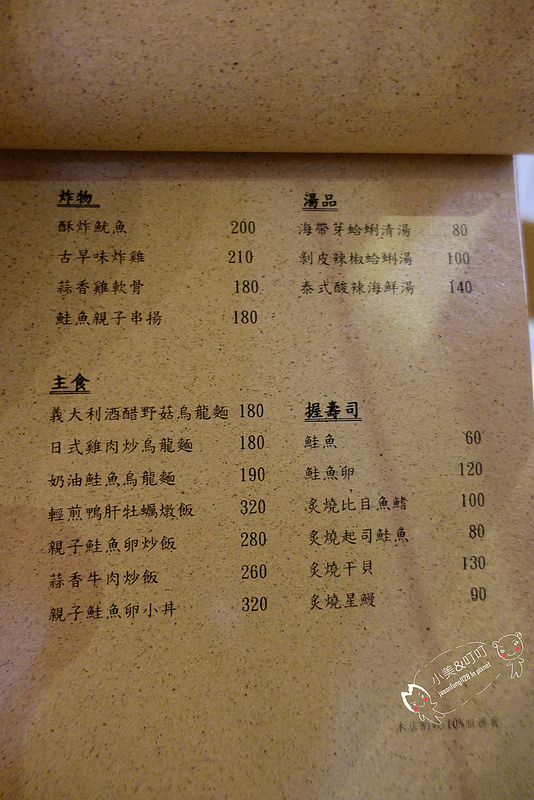 炸物
酥炸魷魚 200
古早味炸雞 210
蒜香雞軟骨 180
鮭魚親子串揚 180
湯品
海帶芽蛤蜊清湯 80
剝皮辣椒蛤蜊湯 100
泰式酸辣海鮮湯 140
主食
義大利酒醋野菇烏龍麵 180
日式雞肉炒烏龍麵 180
奶油鮭魚烏龍麵 190
輕煎鴨肝牡蠣燉飯 320
親子鮭魚卵炒飯 280
蒜香牛肉炒飯 260
親子鮭魚卵小丼 320
握壽司
鮭魚 60
鮭魚卵 120
炙燒比目魚鰭 100
炙燒起司鮭魚 80
炙燒干貝 130
炙燒星鰻 90
小美&叮叮
jasonfang1128 in pixnet
本店酌收10%服務費